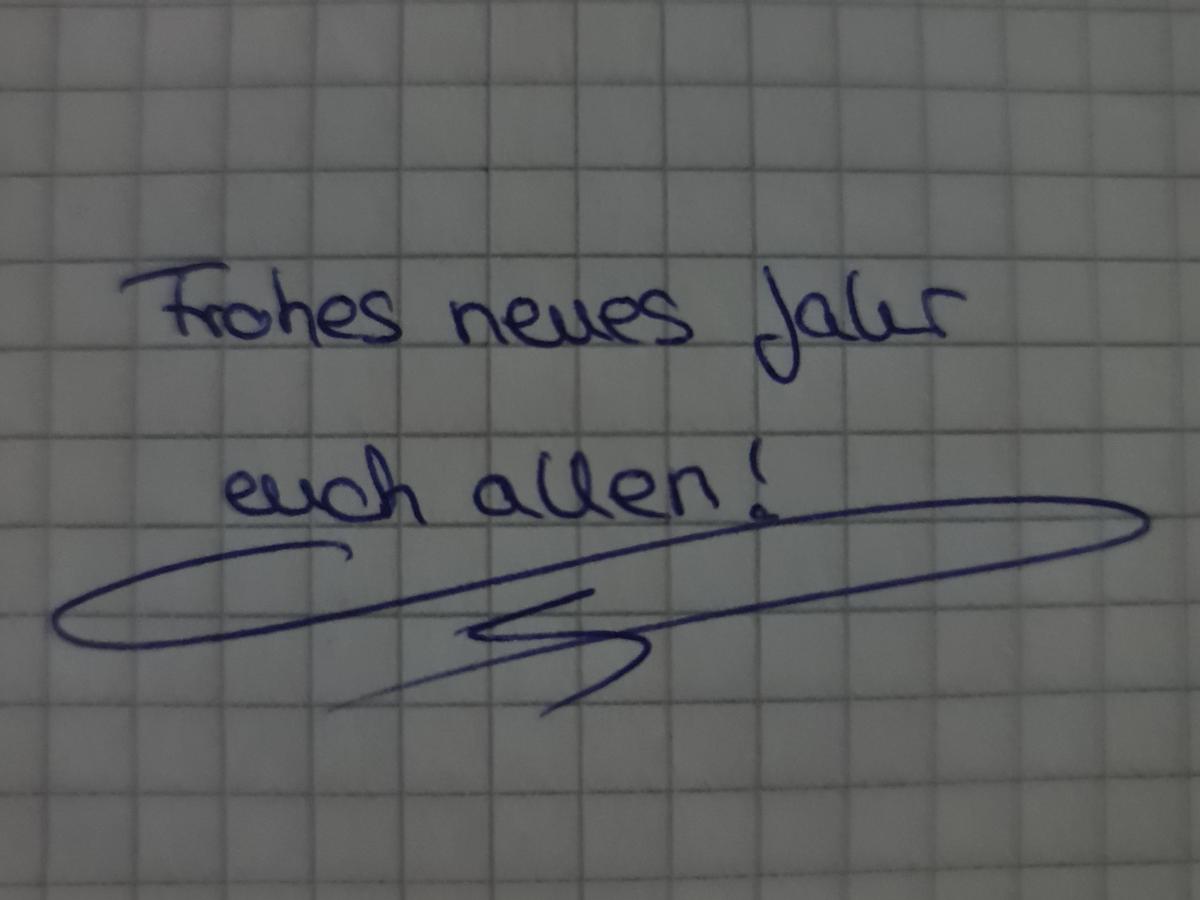 Frohes neues Jahr
euch allen!